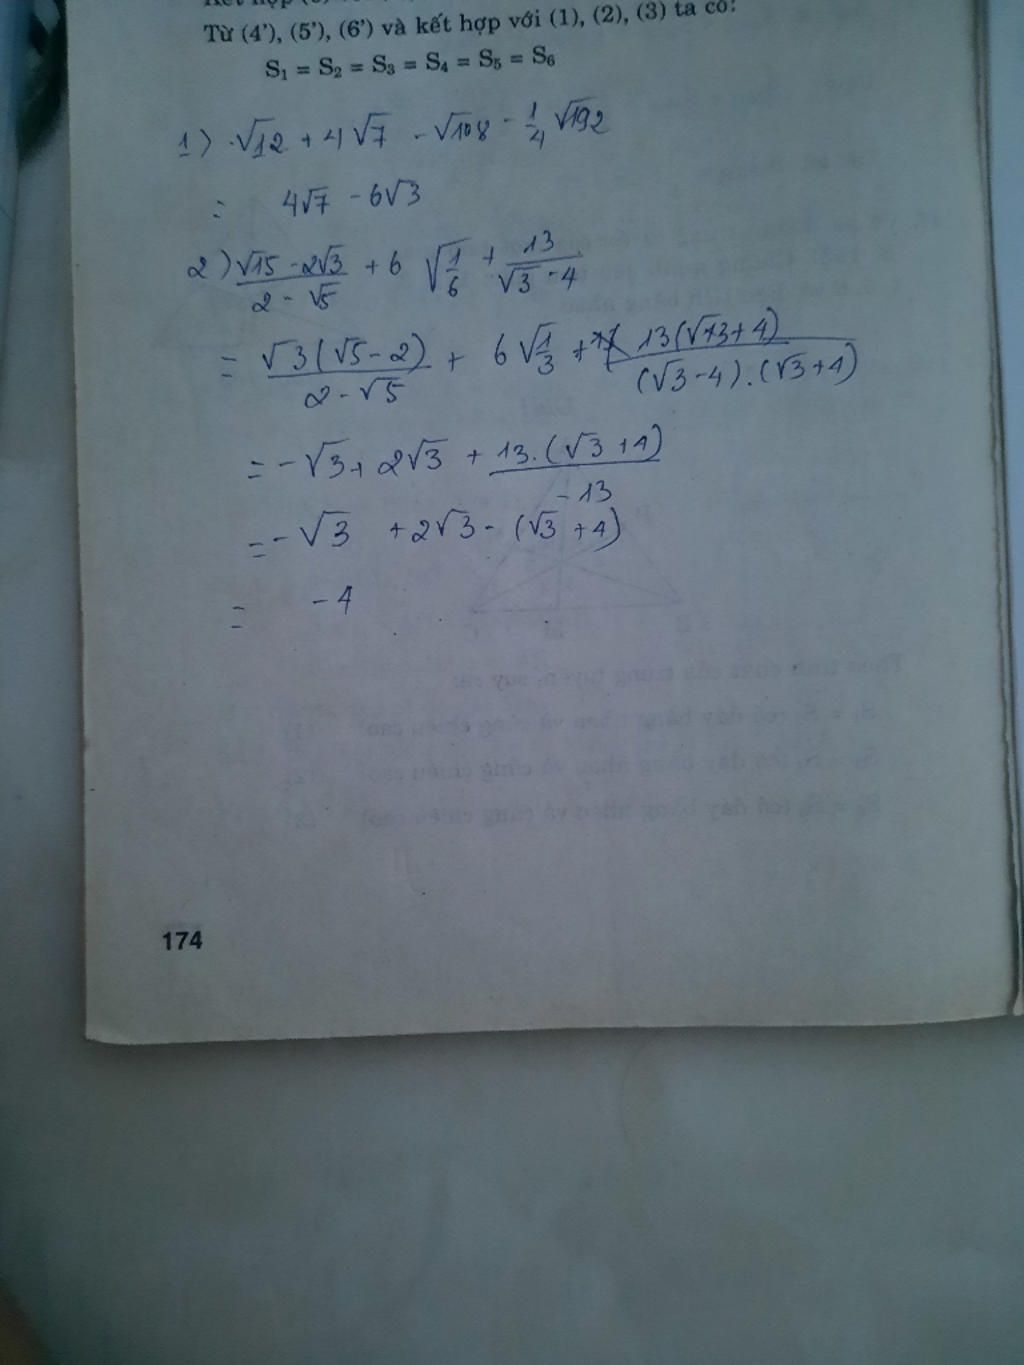 Từ (4’), (5’), (6’) và kết hợp với (1), (2), (3) ta có:
S₁ = S₂ = S₃ = S₄ = S₅ = S₆
1) √12 + 4√7 - √108 - 1/4 √192
= 4√7 - 6√3
2) (√15 - 2√3)/(2 - √5) + 6 √(1/6) + 13/(√3 - 4)
= √3(√5 - 2)/(2 - √5) + 6√(1/3) + 13(√3 + 4)/((√3 - 4).(√3 + 4))
= -√3 + 2√3 + 13.(√3 + 4)/-13
= -√3 + 2√3 - (√3 + 4)
= -4
174